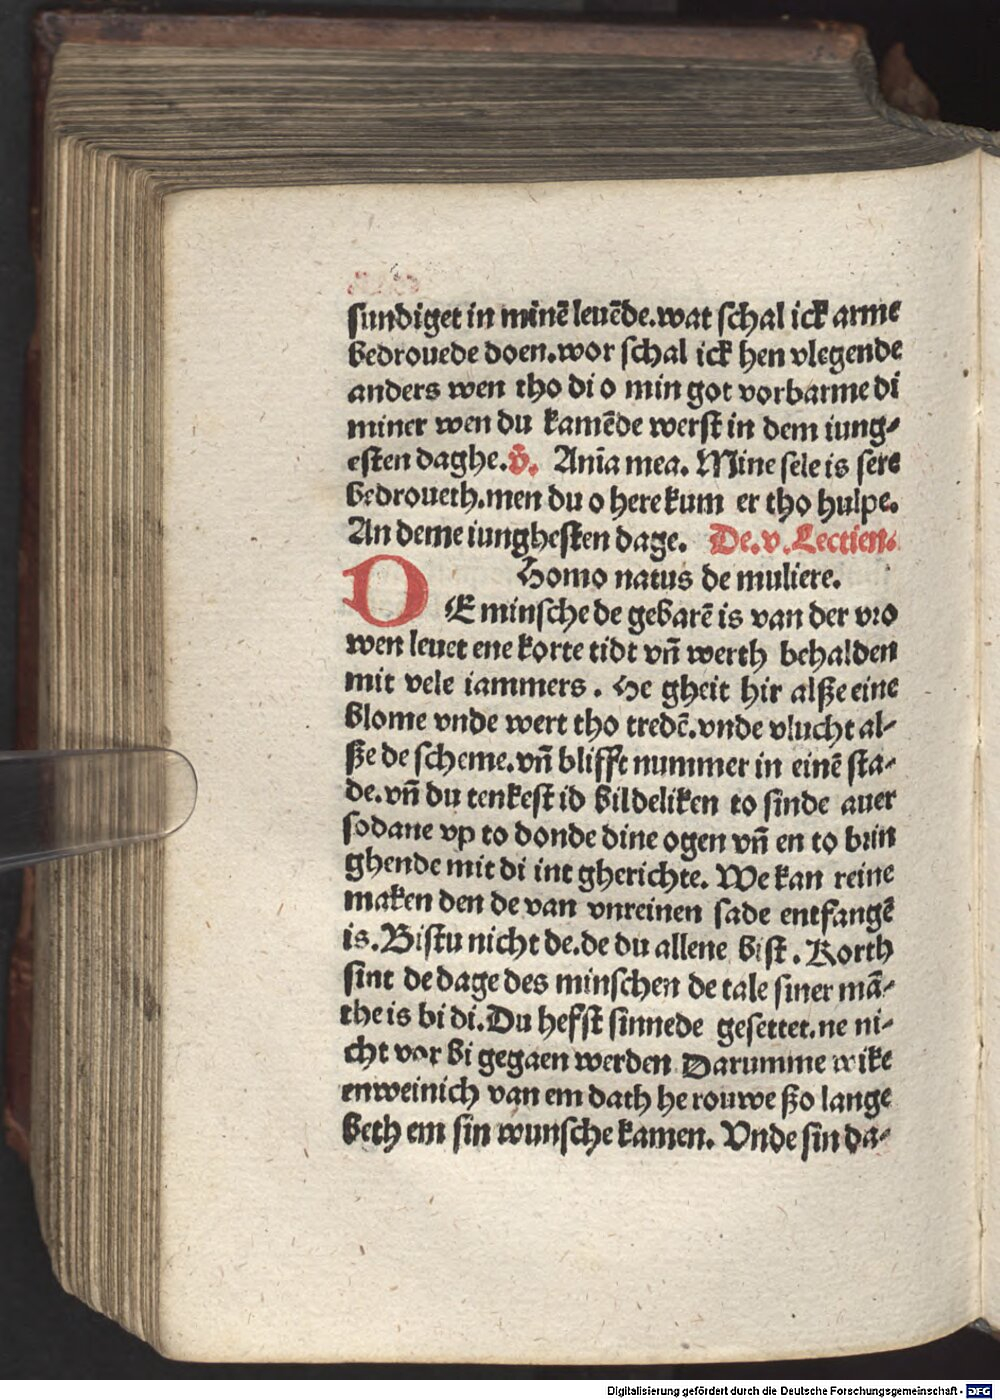 sundiget in minē leuēde.wat schal ick arme
bedrouede doen.wor schal ick hen vlegende
anders wen tho di o min got vorbarme di
miner wen du kamēde werst in dem iung-
esten daghe. v̄. Anīa mea. Mine sele is sere
bedroueth.men du o here kum er tho hulpe.
An deme iunghesten dage. De.v.Lectien.
Homo natus de muliere.
DE minsche de gebarē is van der vro
wen leuet ene korte tidt vn̄ werth behalden
mit vele iammers. He gheit hir alße eine
blome vnde wert tho tredē.vnde vlucht al-
ße de scheme.vn̄ blifft nummer in einē sta-
de.vn̄ du tenkest id bildeliken to sinde auer
sodane vp to donde dine ogen vn̄ en to brin
ghende mit di int gherichte. We kan reine
maken den de van vnreinen sade entfangē
is.Bistu nicht de.de du allene bist. Korth
sint de dage des minschen de tale siner mā-
the is bi di.Du hefst sinnede gesettet.ne ni-
cht vor bi gegaen werden Darumme wike
enweinich van em dath he rouwe ßo lange
beth em sin wunsche kamen. Vnde sin da-
Digitalisierung gefördert durch die Deutsche Forschungsgemeinschaft - DFG